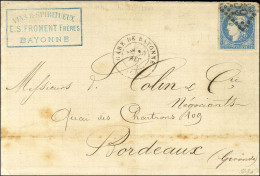 VINS & SPIRITUEUX
E.S. FROMENT FRÈRES
BAYONNE
GARE DE BAYONNE
Messieurs D. Colin & Cie
Négociants
Quai des Chartrons 109
Bordeaux
(Gironde)